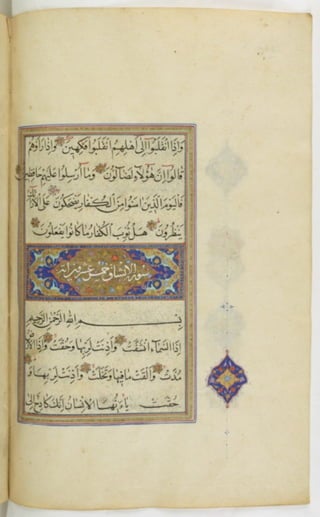 وَإِذَا انْقَلَبُوا إِلَىٰ أَهْلِهِمُ انْقَلَبُوا فَكِهِينَ وَإِذَا رَأَوْهُمْ
قَالُوا إِنَّ هَٰؤُلَاءِ لَضَالُّونَ وَمَا أُرْسِلُوا عَلَيْهِمْ حَافِظِينَ
فَالْيَوْمَ الَّذِينَ آمَنُوا مِنَ الْكُفَّارِ يَضْحَكُونَ عَلَى الْأَرَائِكِ
يَنْظُرُونَ هَلْ ثُوِّبَ الْكُفَّارُ مَا كَانُوا يَفْعَلُونَ
سورة الانشقاق خمس وعشرون آية
بِسْمِ اللَّهِ الرَّحْمَٰنِ الرَّحِيمِ
إِذَا السَّمَاءُ انْشَقَّتْ وَأَذِنَتْ لِرَبِّهَا وَحُقَّتْ وَإِذَا الْأَرْضُ
مُدَّتْ وَأَلْقَتْ مَا فِيهَا وَتَخَلَّتْ وَأَذِنَتْ لِرَبِّهَا وَ
حُقَّتْ يَا أَيُّهَا الْإِنْسَانُ إِنَّكَ كَادِحٌ إِلَىٰ